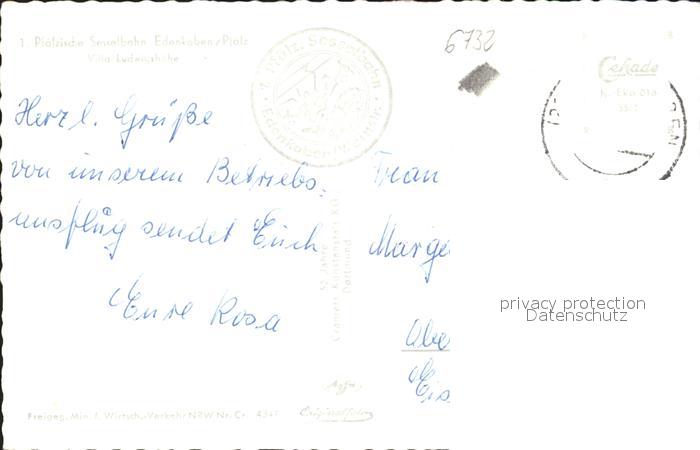 1. Pfälzische Sesselbahn Edenkoben/Pfalz
Villa Ludwigshöhe
1. Pfälz. Sesselbahn
Edenkoben
6732
Cekade
Herzl. Grüße
von unserem Betriebs-
ausflug sendet Euch
Eure Rosa
52 Jahre
Cramers Kunstanstalt KG
Dortmund
Frau
Marge
Obe
Eis
privacy protection
Datenschutz
Freigeg. Min. f. Wirtsch. u. Verkehr NRW Nr. Cr. 4341
Agfa
Originalfoto